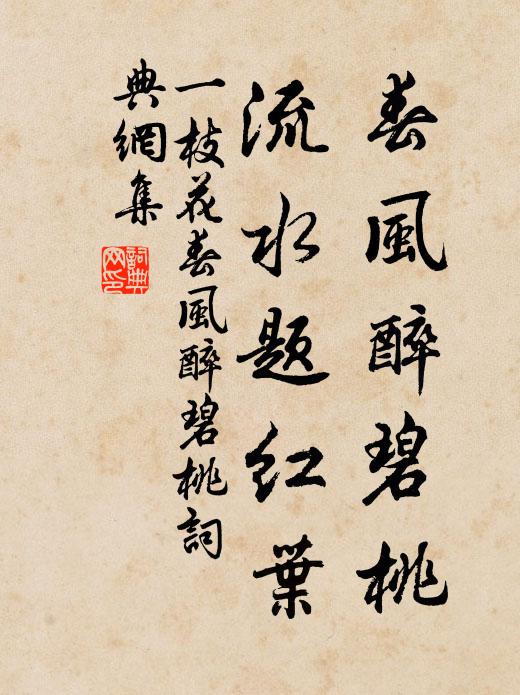 春風醉碧桃
流水題紅葉
一枝花春風醉碧桃詞
典網集
詞典
网印